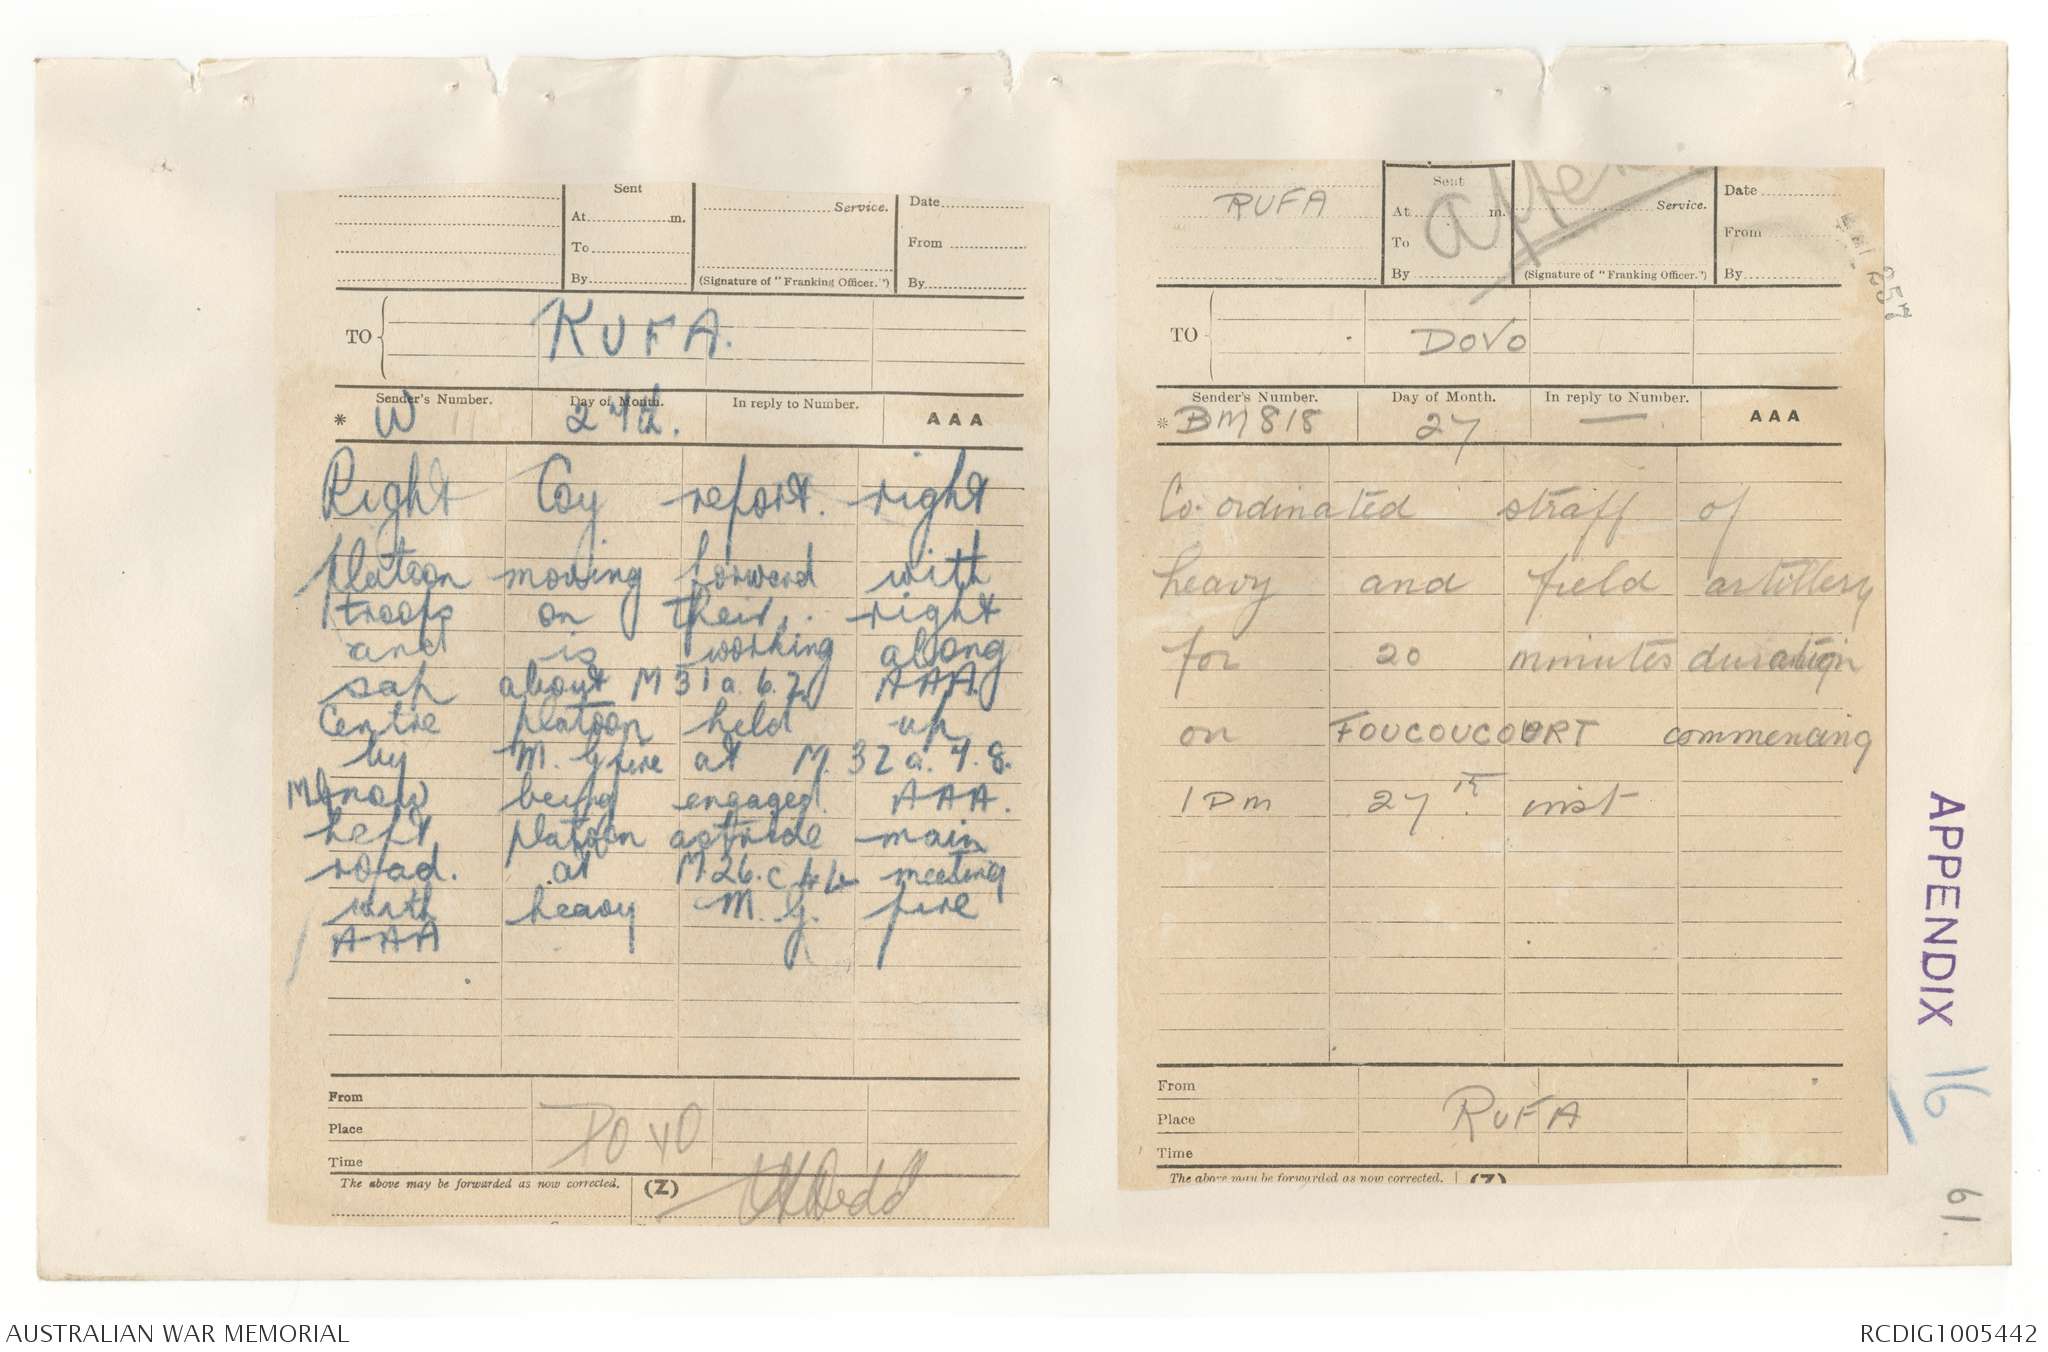 Sent
At m.
To
By
Service.
(Signature of "Franking Officer.")
Date
From
By
TO
RUFA.
Sender's Number.
Day of Month.
In reply to Number.
AAA
* W
27th.
Right Coy report. right
platoon moving forward with
troops on their right
and is working along
sap about M 31 a. 6. 7. AAA
Centre platoon held up
by M. G fire at M. 32 a. 4. 8.
now being engaged. AAA.
Left platoon astride main
road. at M.26. c 4.4 meeting
with heavy M. G. fire
AAA
From
Place
Time
DOVO
The above may be forwarded as now corrected.
(Z)
RUFA
Sent
At m.
To
By
Service.
(Signature of "Franking Officer.")
Date
From
By
TO
DOVO
Sender's Number.
Day of Month.
In reply to Number.
AAA
* BM818
27
—
Co-ordinated straff of
heavy and field artillery
for 20 minutes duration
on FOUCOUCOURT commencing
1 pm 27th inst
From
Place
Time
RUFA
The above may be forwarded as now corrected.
(Z)
APPENDIX 16
61.
AUSTRALIAN WAR MEMORIAL
RCDIG1005442